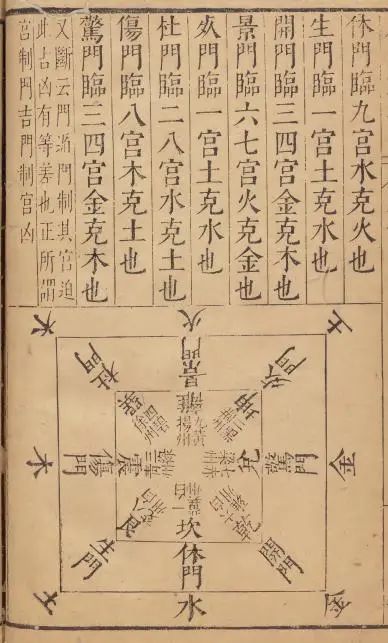 休門臨九宮水克火也
生門臨一宮土克水也
開門臨三四宮金克木也
景門臨六七宮火克金也
死門臨一宮土克水也
杜門臨二八宮水克土也
傷門臨八宮木克土也
驚門臨三四宮金克木也
又斷云門迫門制其宮迫
此占凶有等差也正所謂
宮制門吉門制宮凶
火
景門
離
土
死門
坤
金
驚門
兌
金
開門
乾
水
休門
坎
一白
土
生門
艮
木
傷門
震
木
杜門
巽